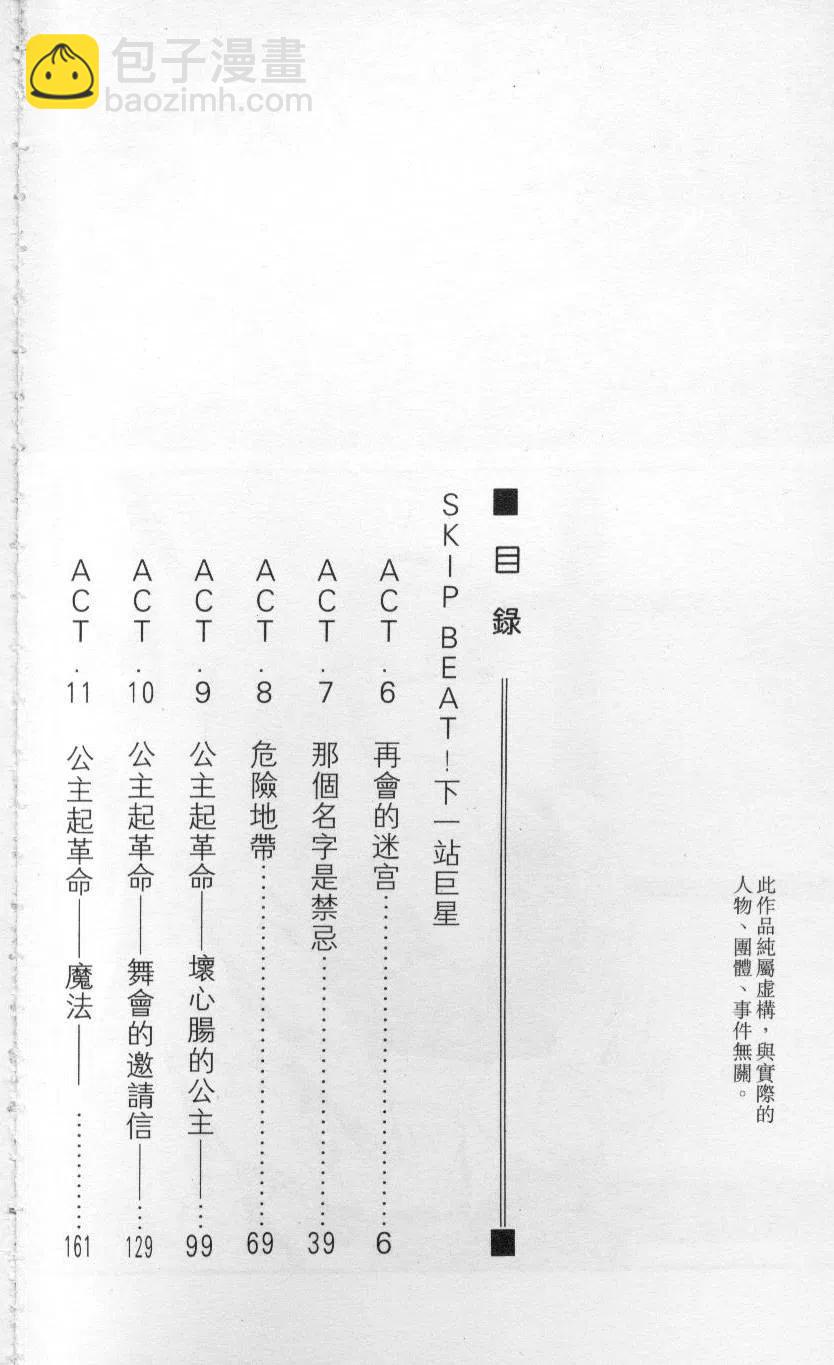 包子漫畫
baozimh.com
此作品純屬虛構，與實際的
人物、團體、事件無關。
■ 目錄 ■
SKIP BEAT！下一站巨星
ACT．6 再會的迷宮…………………………6
ACT．7 那個名字是禁忌…………………………39
ACT．8 危險地帶…………………………69
ACT．9 公主起革命——壞心腸的公主——…99
ACT．10 公主起革命——舞會的邀請信——…129
ACT．11 公主起革命——魔法——…………161